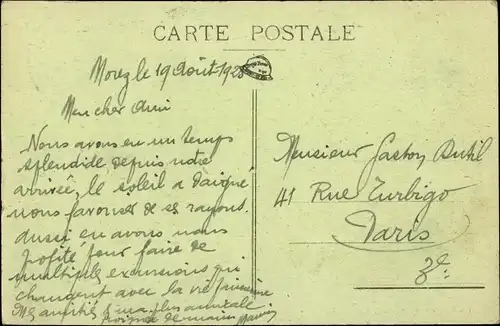 CARTE POSTALE
Morez le 19 Août 1928
Mon cher Ami
Nous avons eu un temps
splendide depuis notre
arrivée, le soleil a daigné
nous favoriser de ses rayons.
aussi en avons nous
profité pour faire de
multiples excursions qui
changent avec la vie parisienne
Mes amitiés & ma plus amicale
poignée de mains
Monsieur Gaston Dutil
41 Rue Turbigo
Paris
3e